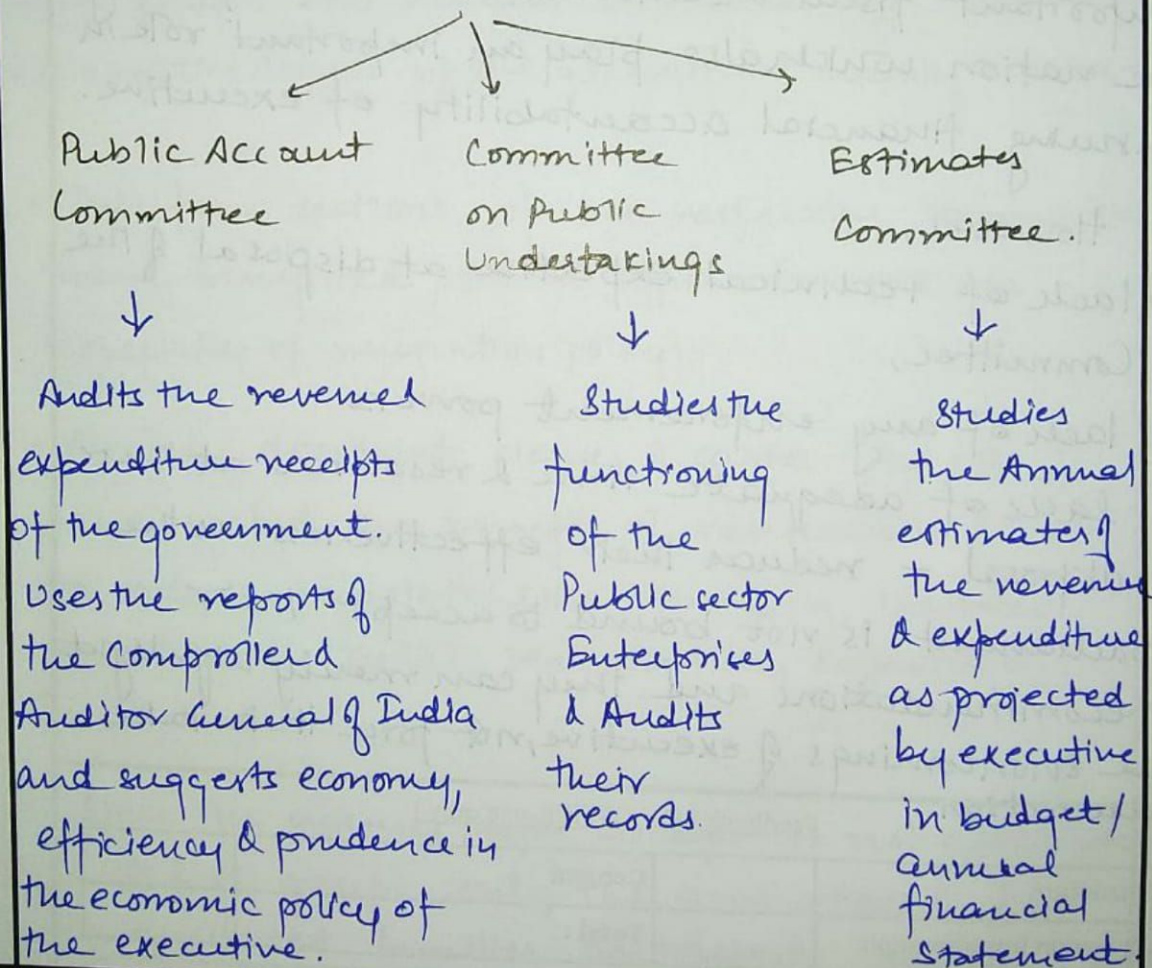 Public Account
Committee
↓
Audits the revenue &
expenditure receipts
of the government.
Uses the reports of
the Comptroller &
Auditor General of India
and suggests economy,
efficiency & prudence in
the economic policy of
the executive.
Committee
on Public
Undertakings
↓
Studies the
functioning
of the
Public sector
Enterprises
& Audits
their
records.
Estimates
Committee.
↓
Studies
the Annual
estimates of
the revenue
& expenditure
as projected
by executive
in budget/
annual
financial
statement.